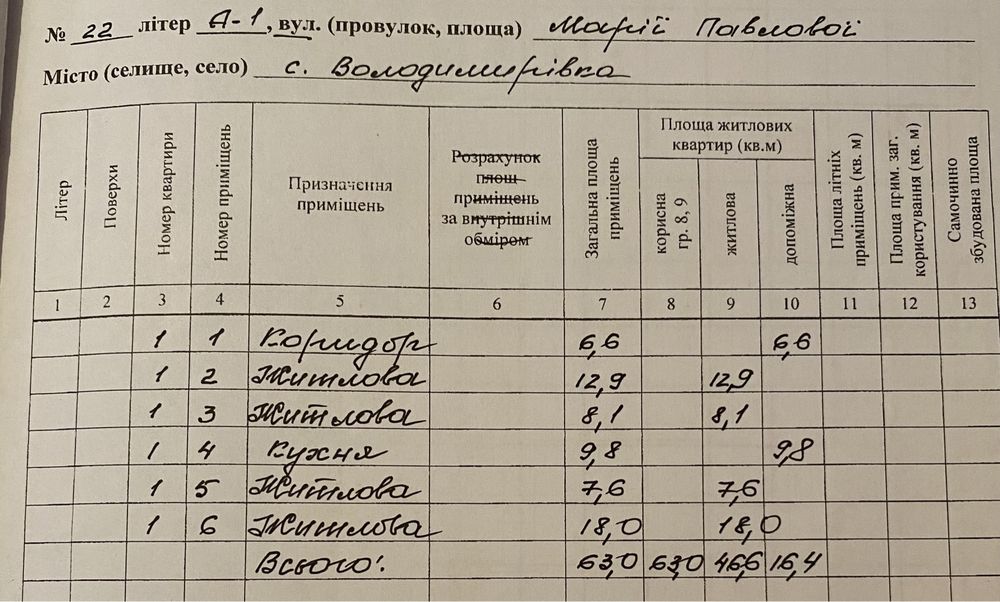 № 22 літер А-1, вул. (провулок, площа) Марії Павлової
Місто (селище, село) с. Володимирівка
Літер Поверхи Номер квартири Номер приміщень Призначення приміщень Розрахунок площ приміщень за внутрішнім обміром Загальна площа приміщень Площа житлових квартир (кв.м) корисна гр. 8, 9 житлова допоміжна Площа літніх приміщень (кв. м) Площа прим. заг. користування (кв. м) Самочинно збудована площа
1 2 3 4 5 6 7 8 9 10 11 12 13
1 1 Коридор 6,6 6,6
1 2 Житлова 12,9 12,9
1 3 Житлова 8,1 8,1
1 4 Кухня 9,8 9,8
1 5 Житлова 7,6 7,6
1 6 Житлова 18,0 18,0
Всього: 63,0 63,0 46,6 16,4